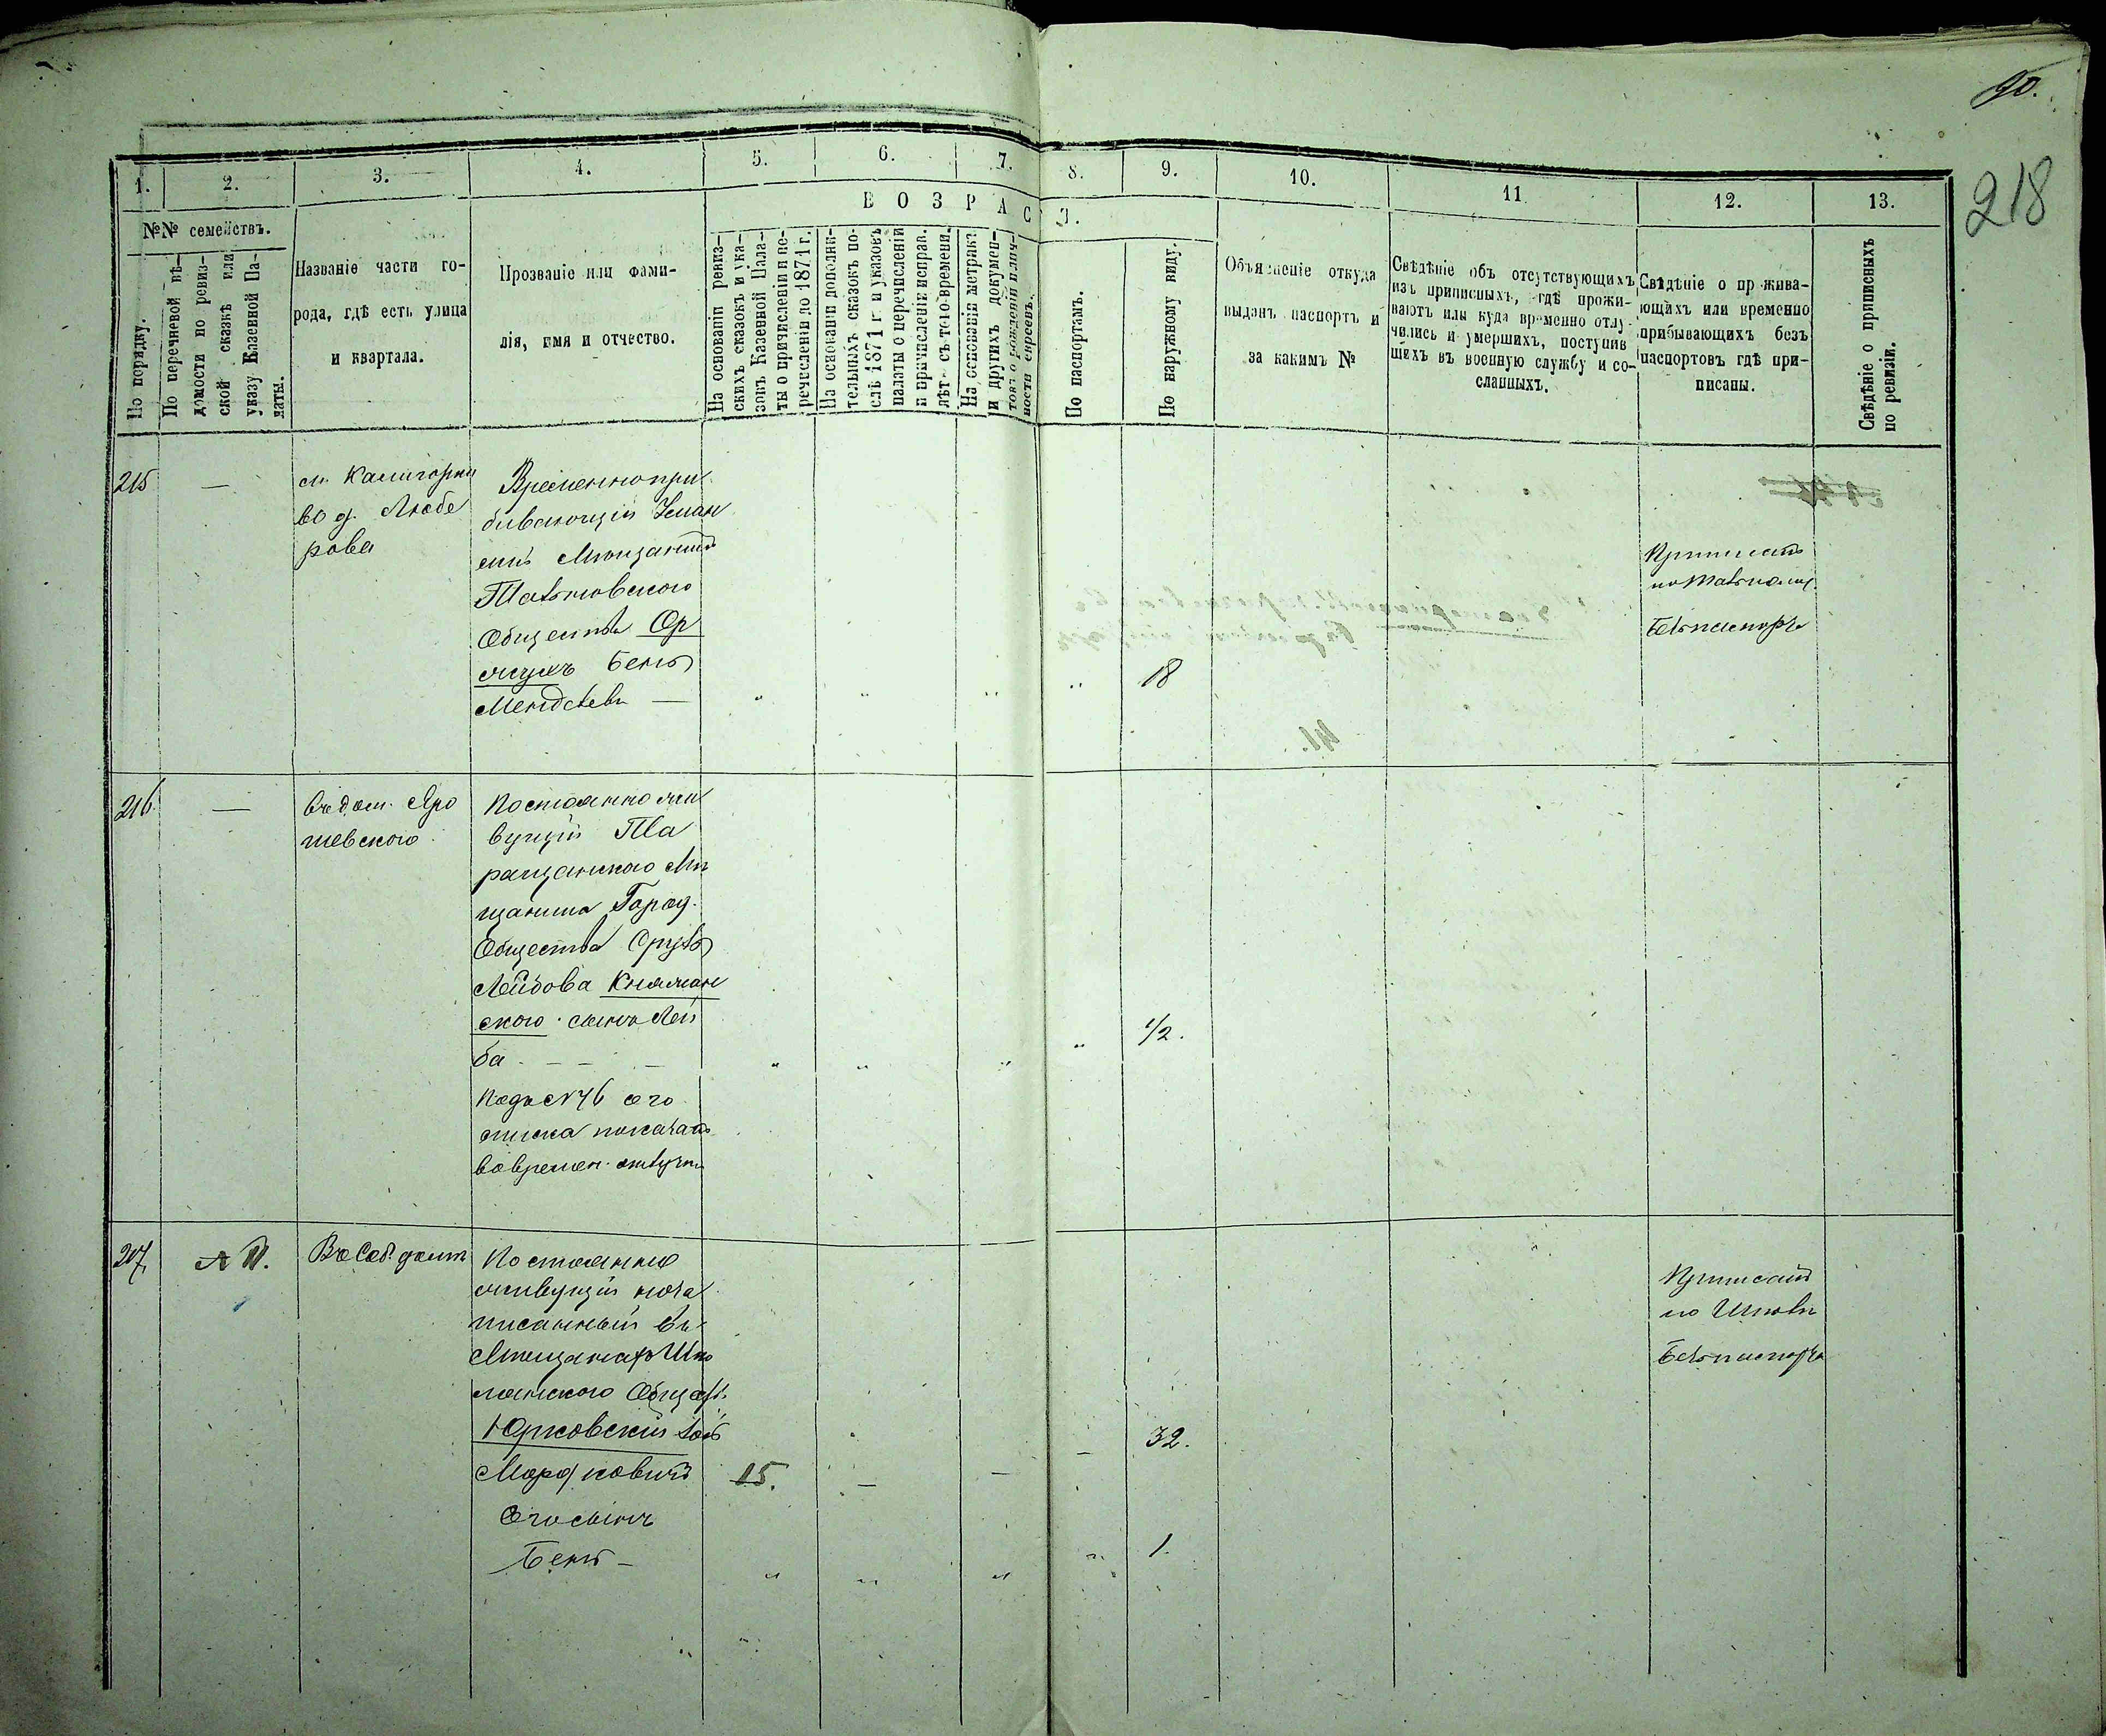 90.
218
1.
2.
3.
4.
5.
6.
7.
8.
9.
10.
11
12.
13.
№№ семействъ.
ВОЗРАСТ.
По порядку.
По перечневой вѣ-
домости по ревиз-
ской сказкѣ или
указу Казенной Па-
латы.
Названіе части го-
рода, гдѣ есть улица
и квартала.
Прозваніе или фами-
лія, имя и отчество.
На основаніи ревиз-
скихъ сказокъ и ука-
зовъ Казенной Пала-
ты о причисленіи и пе-
речисленіи до 1871 г.
На основаніи дополни-
тельныхъ сказокъ по-
слѣ 1871 г. и указовъ
палаты о перечисленіи
и причисленіе исправ.
лѣт. съ того времени.
На основаніи метрикъ
и другихъ докумен-
товъ о рожденіи и лич-
ности евреевъ.
По паспортамъ.
По наружному виду.
Объясненіе откуда
выданъ паспортъ и
за какимъ №
Свѣдѣніе объ отсутствующихъ
изъ приписныхъ, гдѣ прожи-
ваютъ или куда временно отлу-
чились и умершихъ, поступив
шихъ въ военную службу и со-
сланныхъ.
Свѣдѣніе о прожива-
ющихъ или временно
прибывающихъ безъ
паспортовъ гдѣ при-
писаны.
Свѣдѣніе о приписныхъ
по ревизіи.
215
—
м. Калигорки
во д. Любе
рова
Временно при
бывающій Уман
скій Мѣщанинъ
Общества Ор
Бенъ
18
216
—
Въ дом. Яро
шевского
Постоянно жи
вущій Та
ращанского Мѣ
щанина Город.
Общества
Лейбова Княжан
ского сынъ Лей
ба
Подъ № 46 сего
списка показанъ
во времен. отлучки
1/2.
217.
№ 11.
Въ Соб. домѣ
Постоянно
живущій
писанный въ
Мѣщанахъ Шпо
лянского Общест.
Юрковскій
Мордковичъ
15.
—
—
—
32.
Его сынъ
Бенъ –
1.
Приписанъ
по
Безъ паспорта
Приписанъ
по Шполѣ
Безъ паспорта